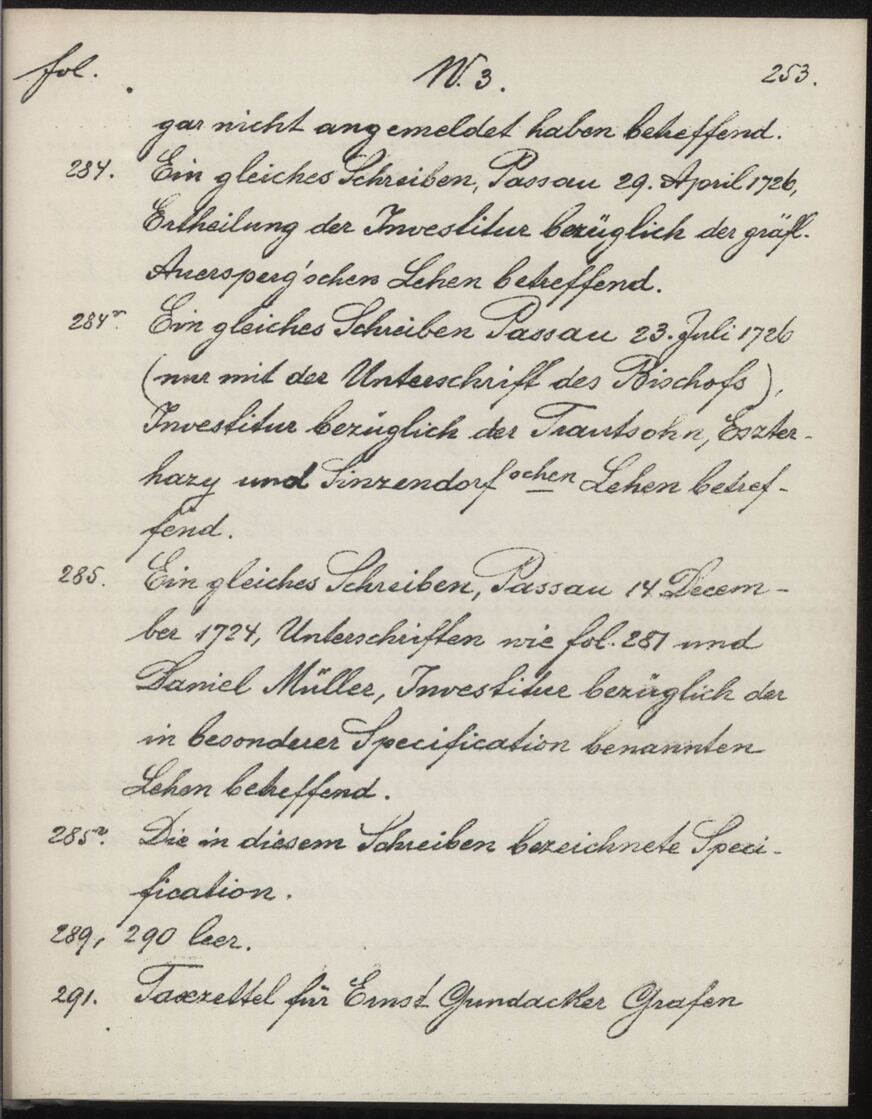 fol. W. 3. 253.
gar nicht angemeldet haben betreffend.
284. Ein gleiches Schreiben, Passau 29. April 1726,
Ertheilung der Investitur bezüglich der gräfl.
Auersperg'schen Lehen betreffend.
284v. Ein gleiches Schreiben Passau 23. Juli 1726
(nur mit der Unterschrift des Bischofs),
Investitur bezüglich der Trautsohn, Eszter-
hazy und Sinzendorfschen Lehen betref-
fend.
285. Ein gleiches Schreiben, Passau 14. Decem-
ber 1724, Unterschriften wie fol. 281 und
Daniel Müller, Investitur bezüglich der
in besonderer Specification benannten
Lehen betreffend.
285v. Die in diesem Schreiben bezeichnete Speci-
fication.
289, 290 leer.
291. Taxzettel für Ernst Gundacker Grafen